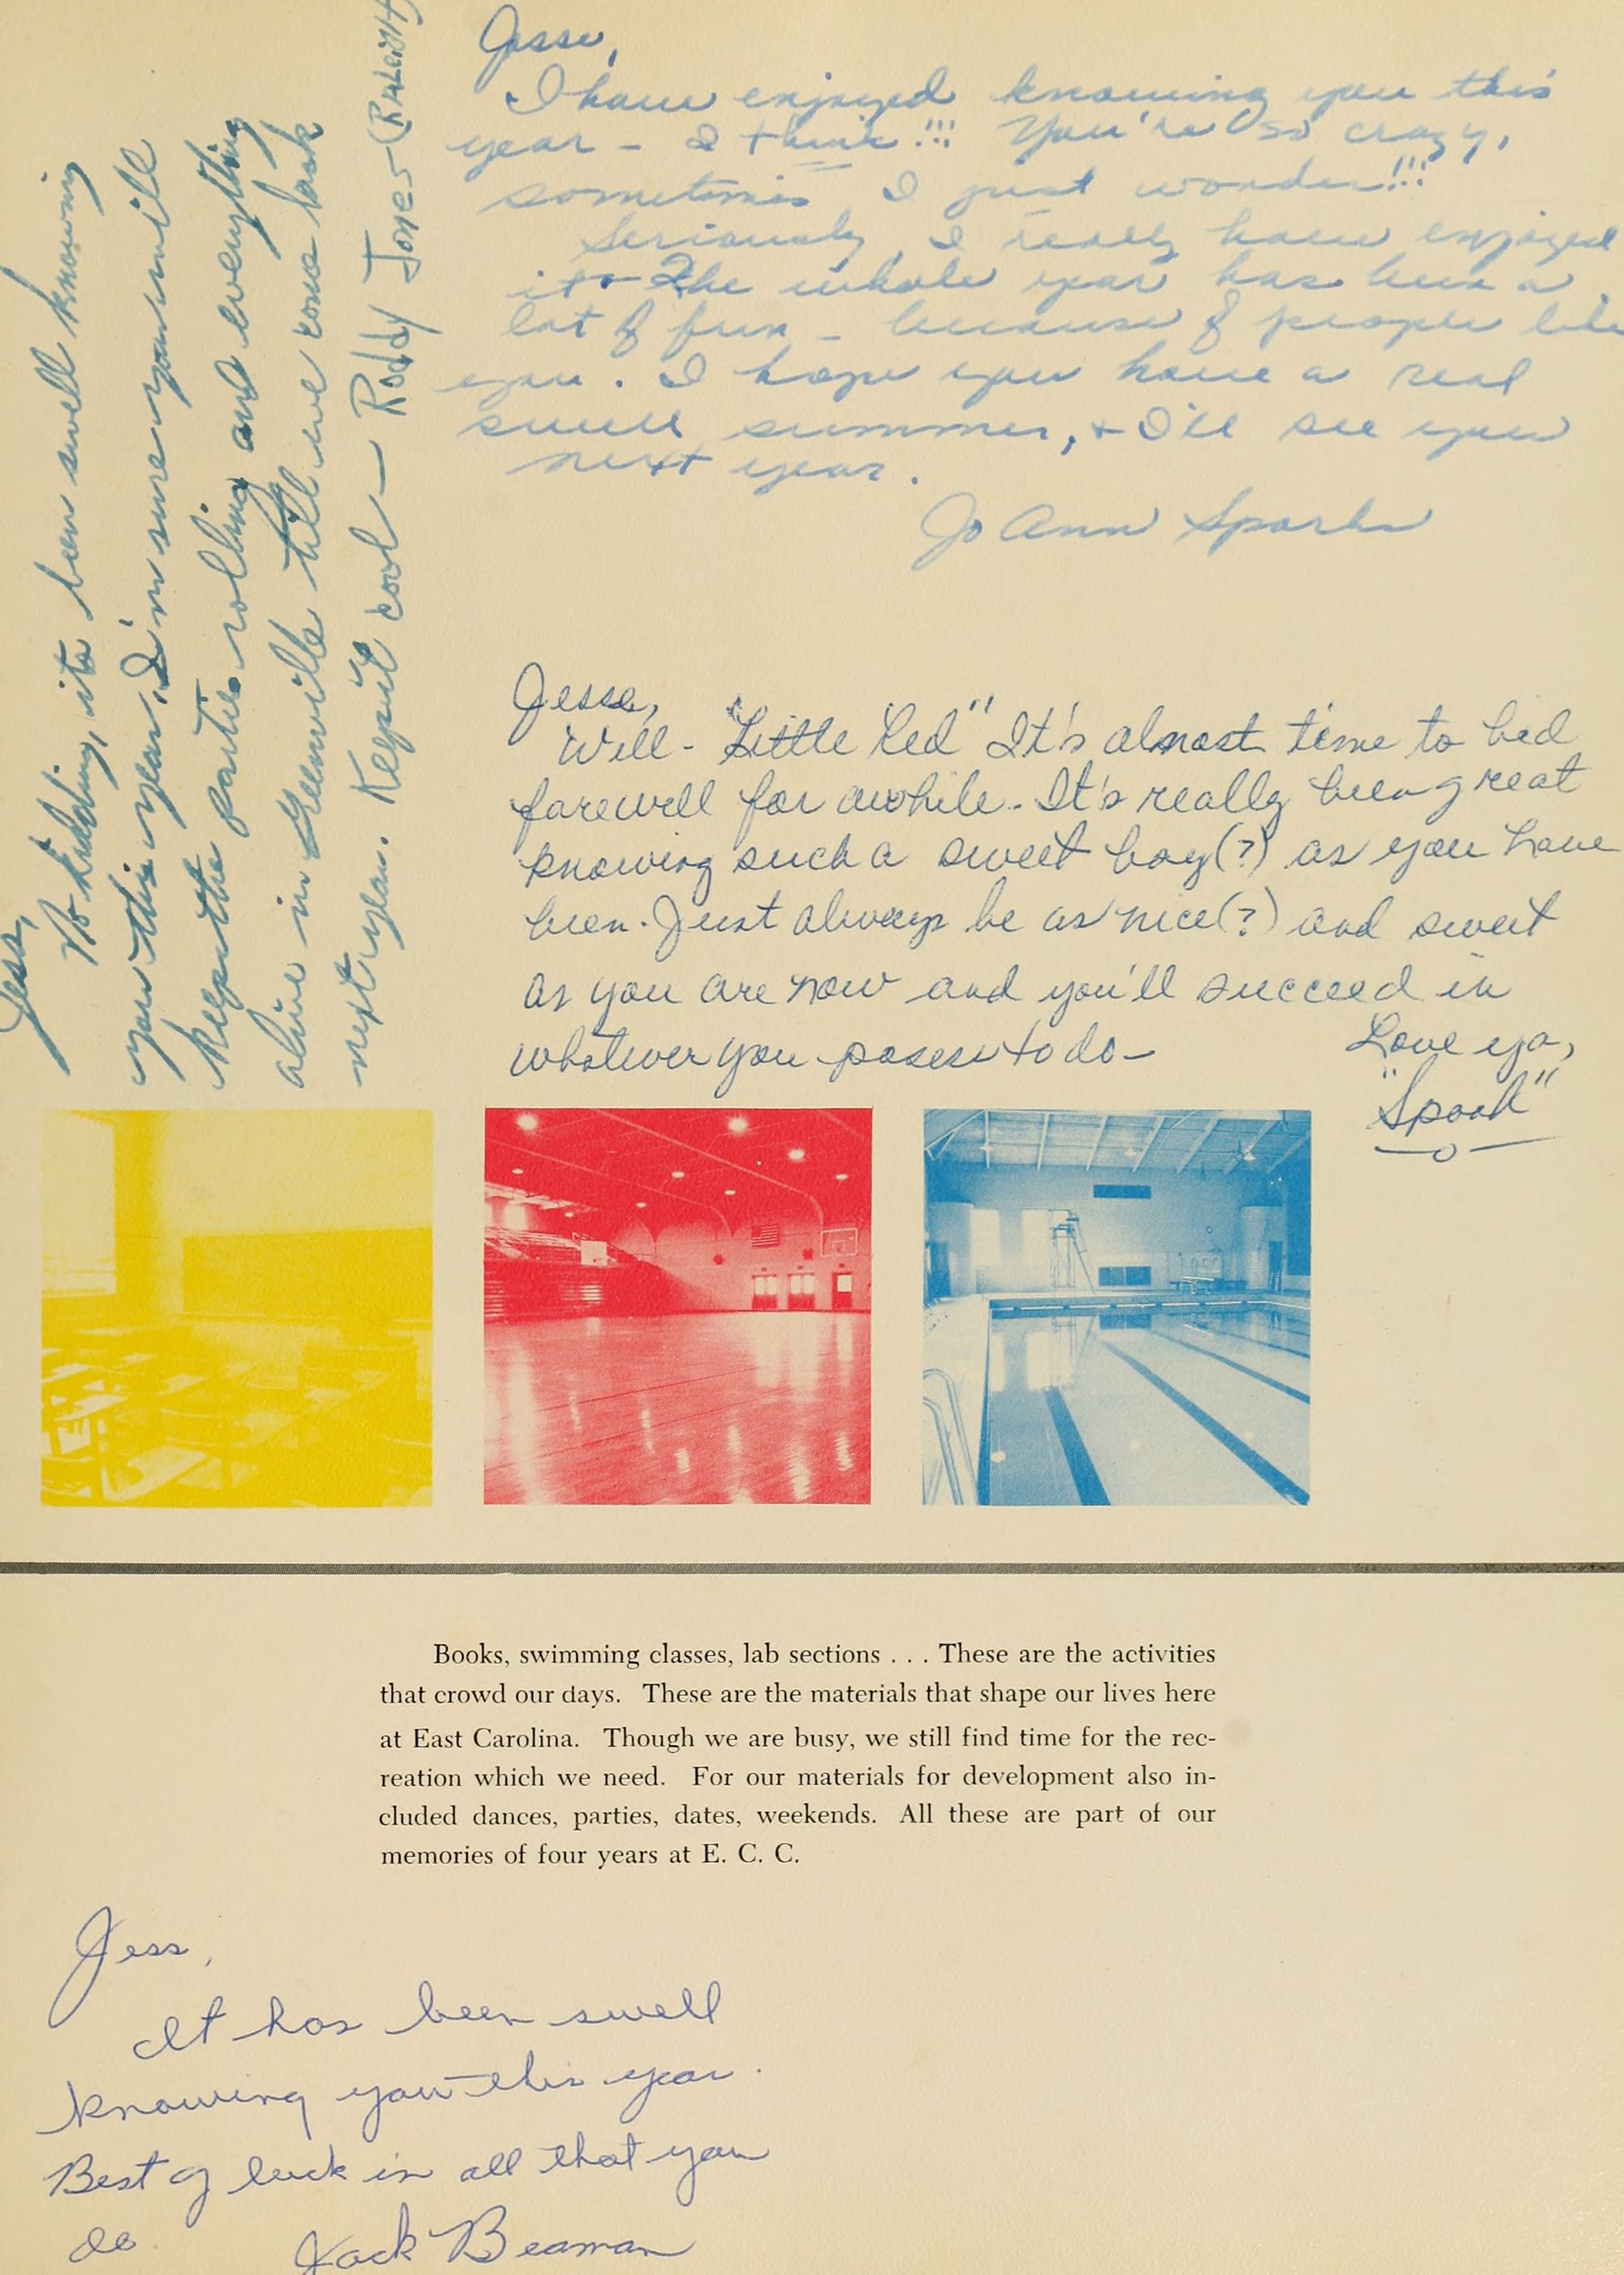 Jess,
No kidding, its been swell knowing
you this year, I'm sure you will
keep the parties rolling and everything
alive in Greenville till we come back
next year. Keep it cool — Roddy Jones (Raleigh)
Jesse,
I have enjoyed knowing you this
year - I think!!! You're so crazy,
sometimes I just wonder!!!
Seriously, I really have enjoyed
it. The whole year has been a
lot of fun - because of people like
you. I hope you have a real
swell summer, + I'll see you
next year.
Jo Ann Sparks
Jesse,
Well - "Little Red" It's almost time to bid
farewell for awhile. It's really been great
knowing such a sweet boy(?) as you have
been. Just always be as nice(?) and sweet
as you are now and you'll succeed in
whatever you to do -
Love ya,
"Spook"
Books, swimming classes, lab sections . . . These are the activities
that crowd our days. These are the materials that shape our lives here
at East Carolina. Though we are busy, we still find time for the rec-
reation which we need. For our materials for development also in-
cluded dances, parties, dates, weekends. All these are part of our
memories of four years at E. C. C.
Jess,
It has been swell
knowing you this year.
Best of luck in all that you
do.
Jack Beaman